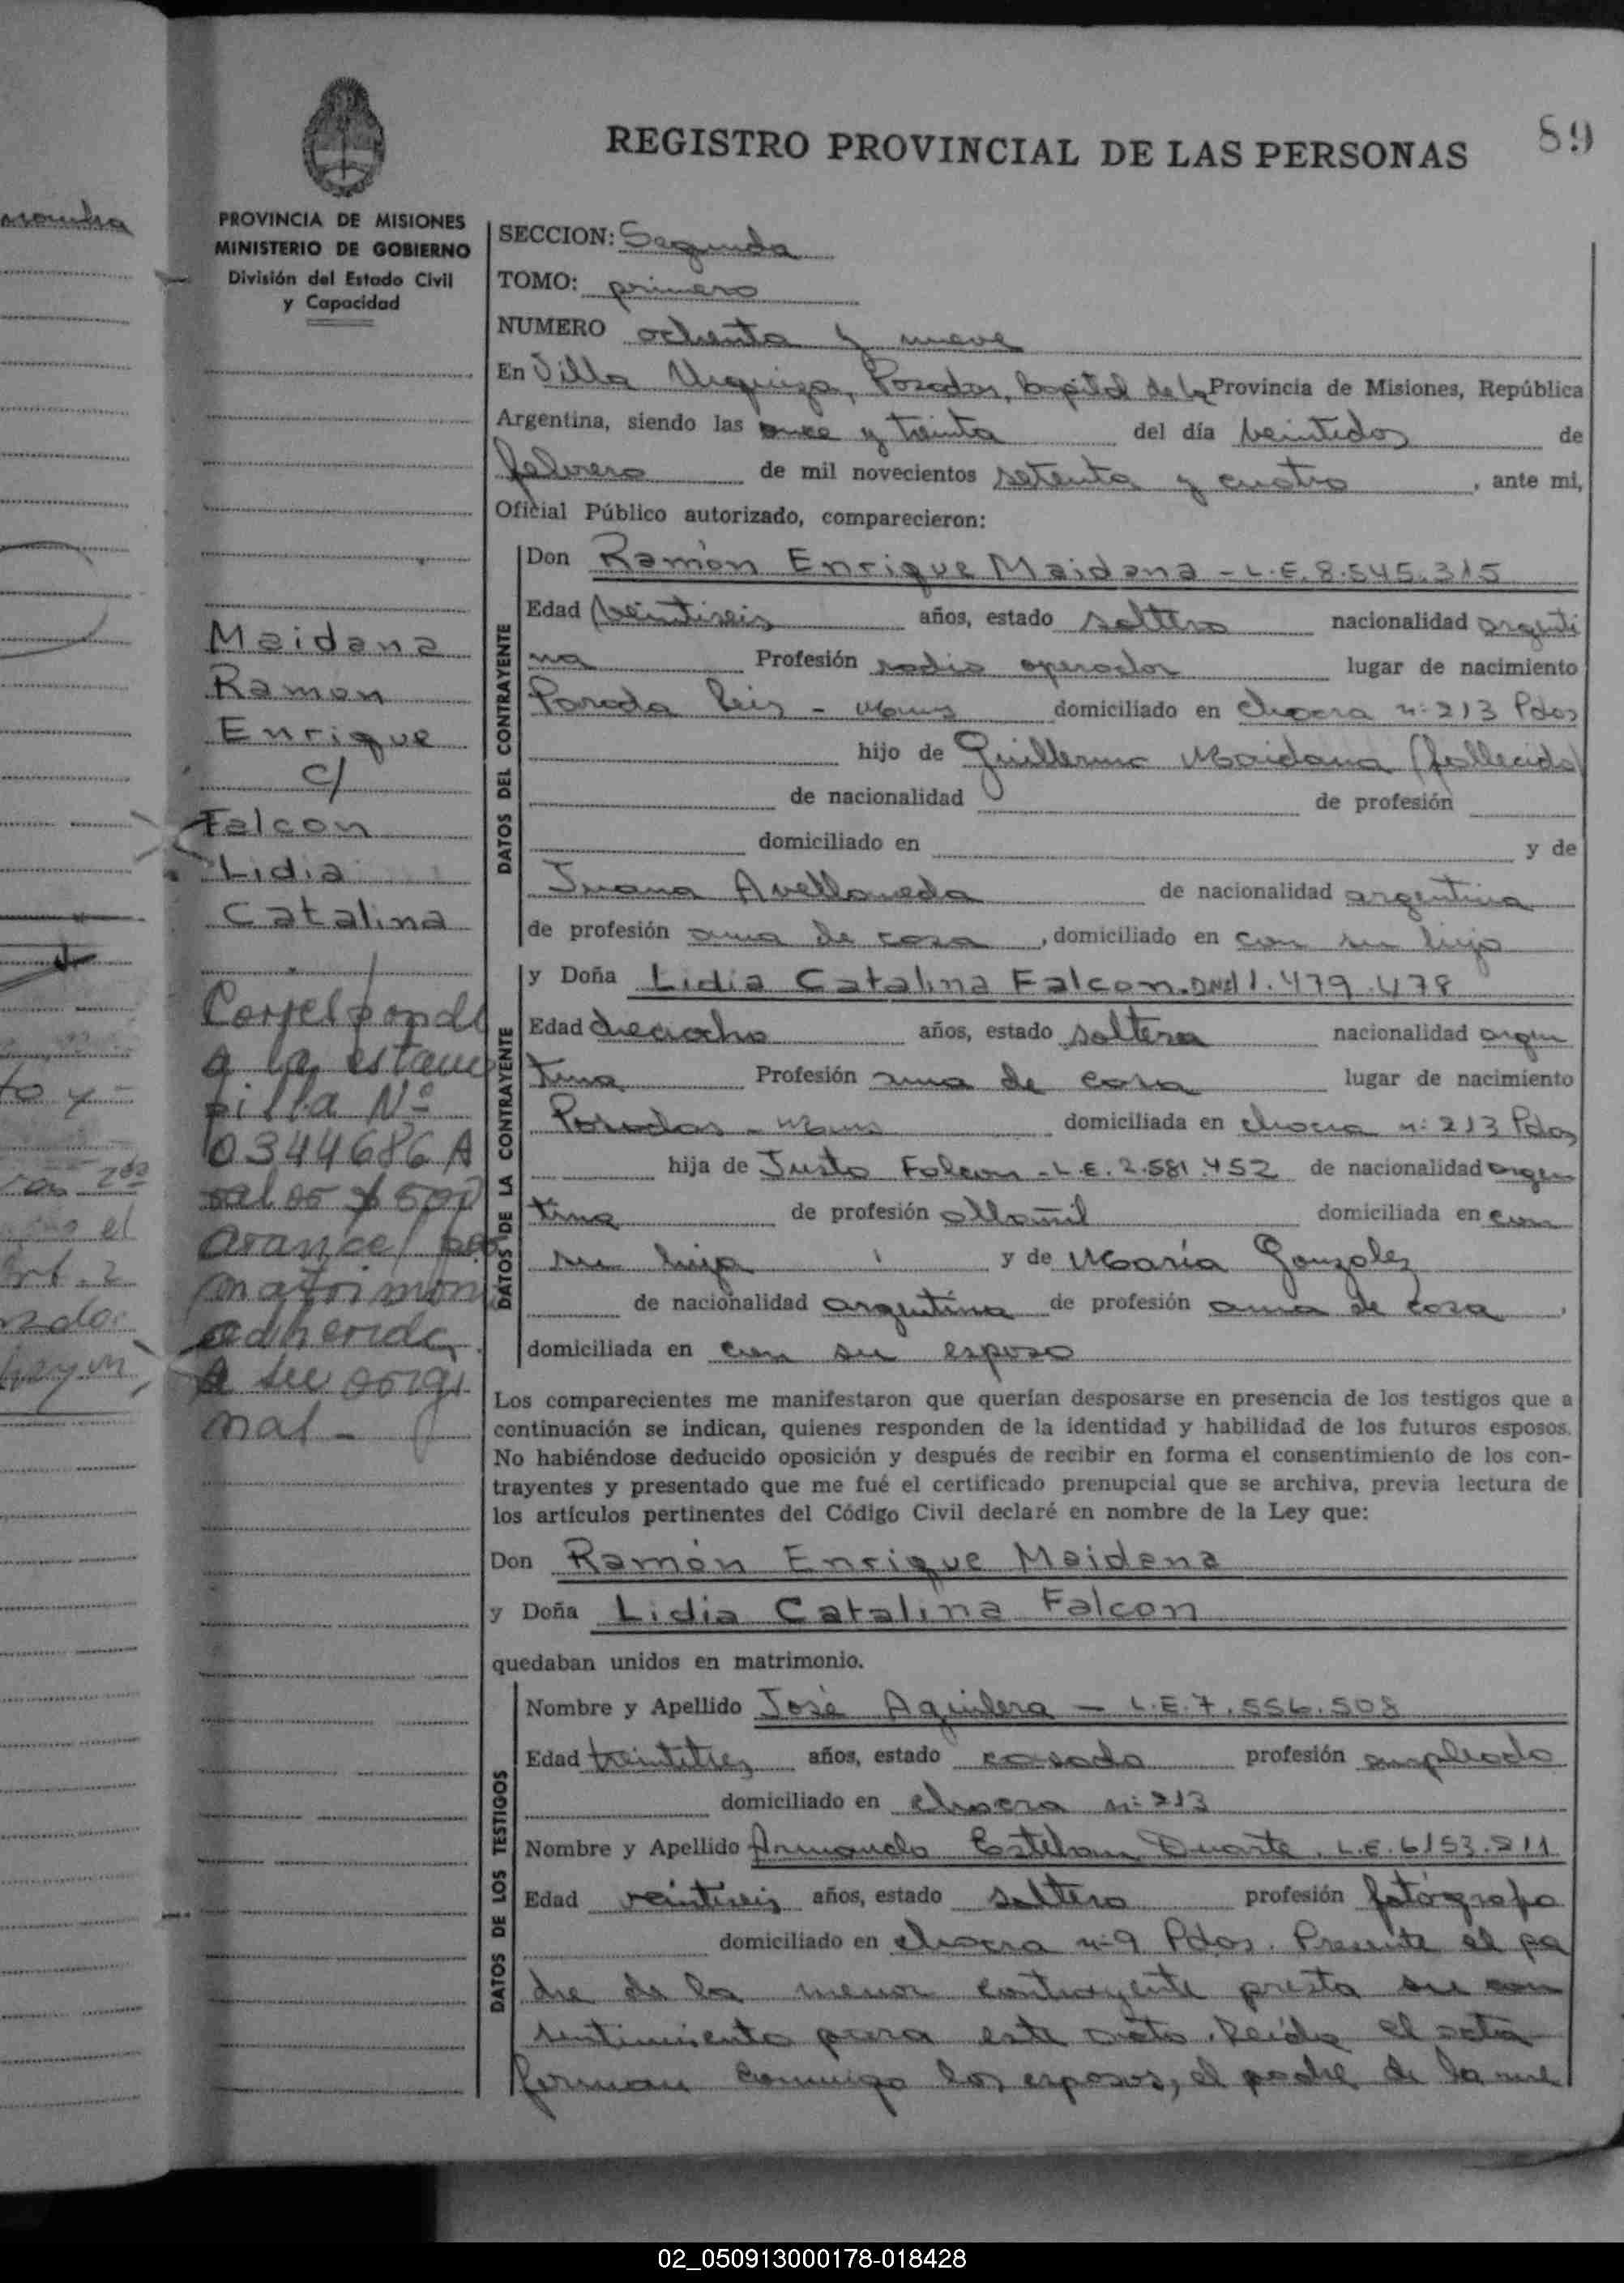 REGISTRO PROVINCIAL DE LAS PERSONAS
89
PROVINCIA DE MISIONES
MINISTERIO DE GOBIERNO
División del Estado Civil
y Capacidad
Maidana
Ramon
Enrique
c/
Falcon
Lidia
Catalina
Corresponde
a la estam
pilla Nº
0344686 A
valor $ 500
arancel por
matrimon
adherida
a su origi
nal -
SECCION: Segunda
TOMO: primero
NUMERO ochenta y nueve
En Villa Urquiza, Posadas, Capital de la Provincia de Misiones, República
Argentina, siendo las once y treinta del día veintidos de
febrero de mil novecientos setenta y cuatro, ante mi,
Oficial Público autorizado, comparecieron:
DATOS DEL CONTRAYENTE
Don Ramón Enrique Maidana - L.E. 8.545.315
Edad veintiseis años, estado soltero nacionalidad argenti
na Profesión radio operador lugar de nacimiento
Parada Leis - Mnes domiciliado en chacra nº 213 Pdas
hijo de Guillermo Maidana (fallecido)
de nacionalidad de profesión
domiciliado en y de
Juana Avellaneda de nacionalidad argentina
de profesión ama de casa, domiciliado en con su hijo
DATOS DE LA CONTRAYENTE
y Doña Lidia Catalina Falcon. DNI 11.479.478
Edad dieciocho años, estado soltera nacionalidad argen
tina Profesión ama de casa lugar de nacimiento
Posadas - Mnes domiciliada en chacra nº 213 Pdas
hija de Justo Falcon - L.E. 2.581.452 de nacionalidad argen
tina de profesión albañil domiciliada en con
su hija y de María Gonzalez
de nacionalidad argentina de profesión ama de casa,
domiciliada en con su esposo
Los comparecientes me manifestaron que querían desposarse en presencia de los testigos que a
continuación se indican, quienes responden de la identidad y habilidad de los futuros esposos.
No habiéndose deducido oposición y después de recibir en forma el consentimiento de los con-
trayentes y presentado que me fué el certificado prenupcial que se archiva, previa lectura de
los artículos pertinentes del Código Civil declaré en nombre de la Ley que:
Don Ramón Enrique Maidana
y Doña Lidia Catalina Falcon
quedaban unidos en matrimonio.
DATOS DE LOS TESTIGOS
Nombre y Apellido José Aguilera - L.E. 7.556.508
Edad treintitres años, estado casado profesión empleado
domiciliado en chacra nº 213
Nombre y Apellido Armando Esteban Duarte. L.E. 6153.211
Edad veintiseis años, estado soltero profesión fotógrafo
domiciliado en chacra nº 9 Pdas. Presente el pa
dre de la menor contrayente presta su con
sentimiento para este acto. Leída el acta
firman conmigo los esposos, el padre de la me
02_050913000178-018428